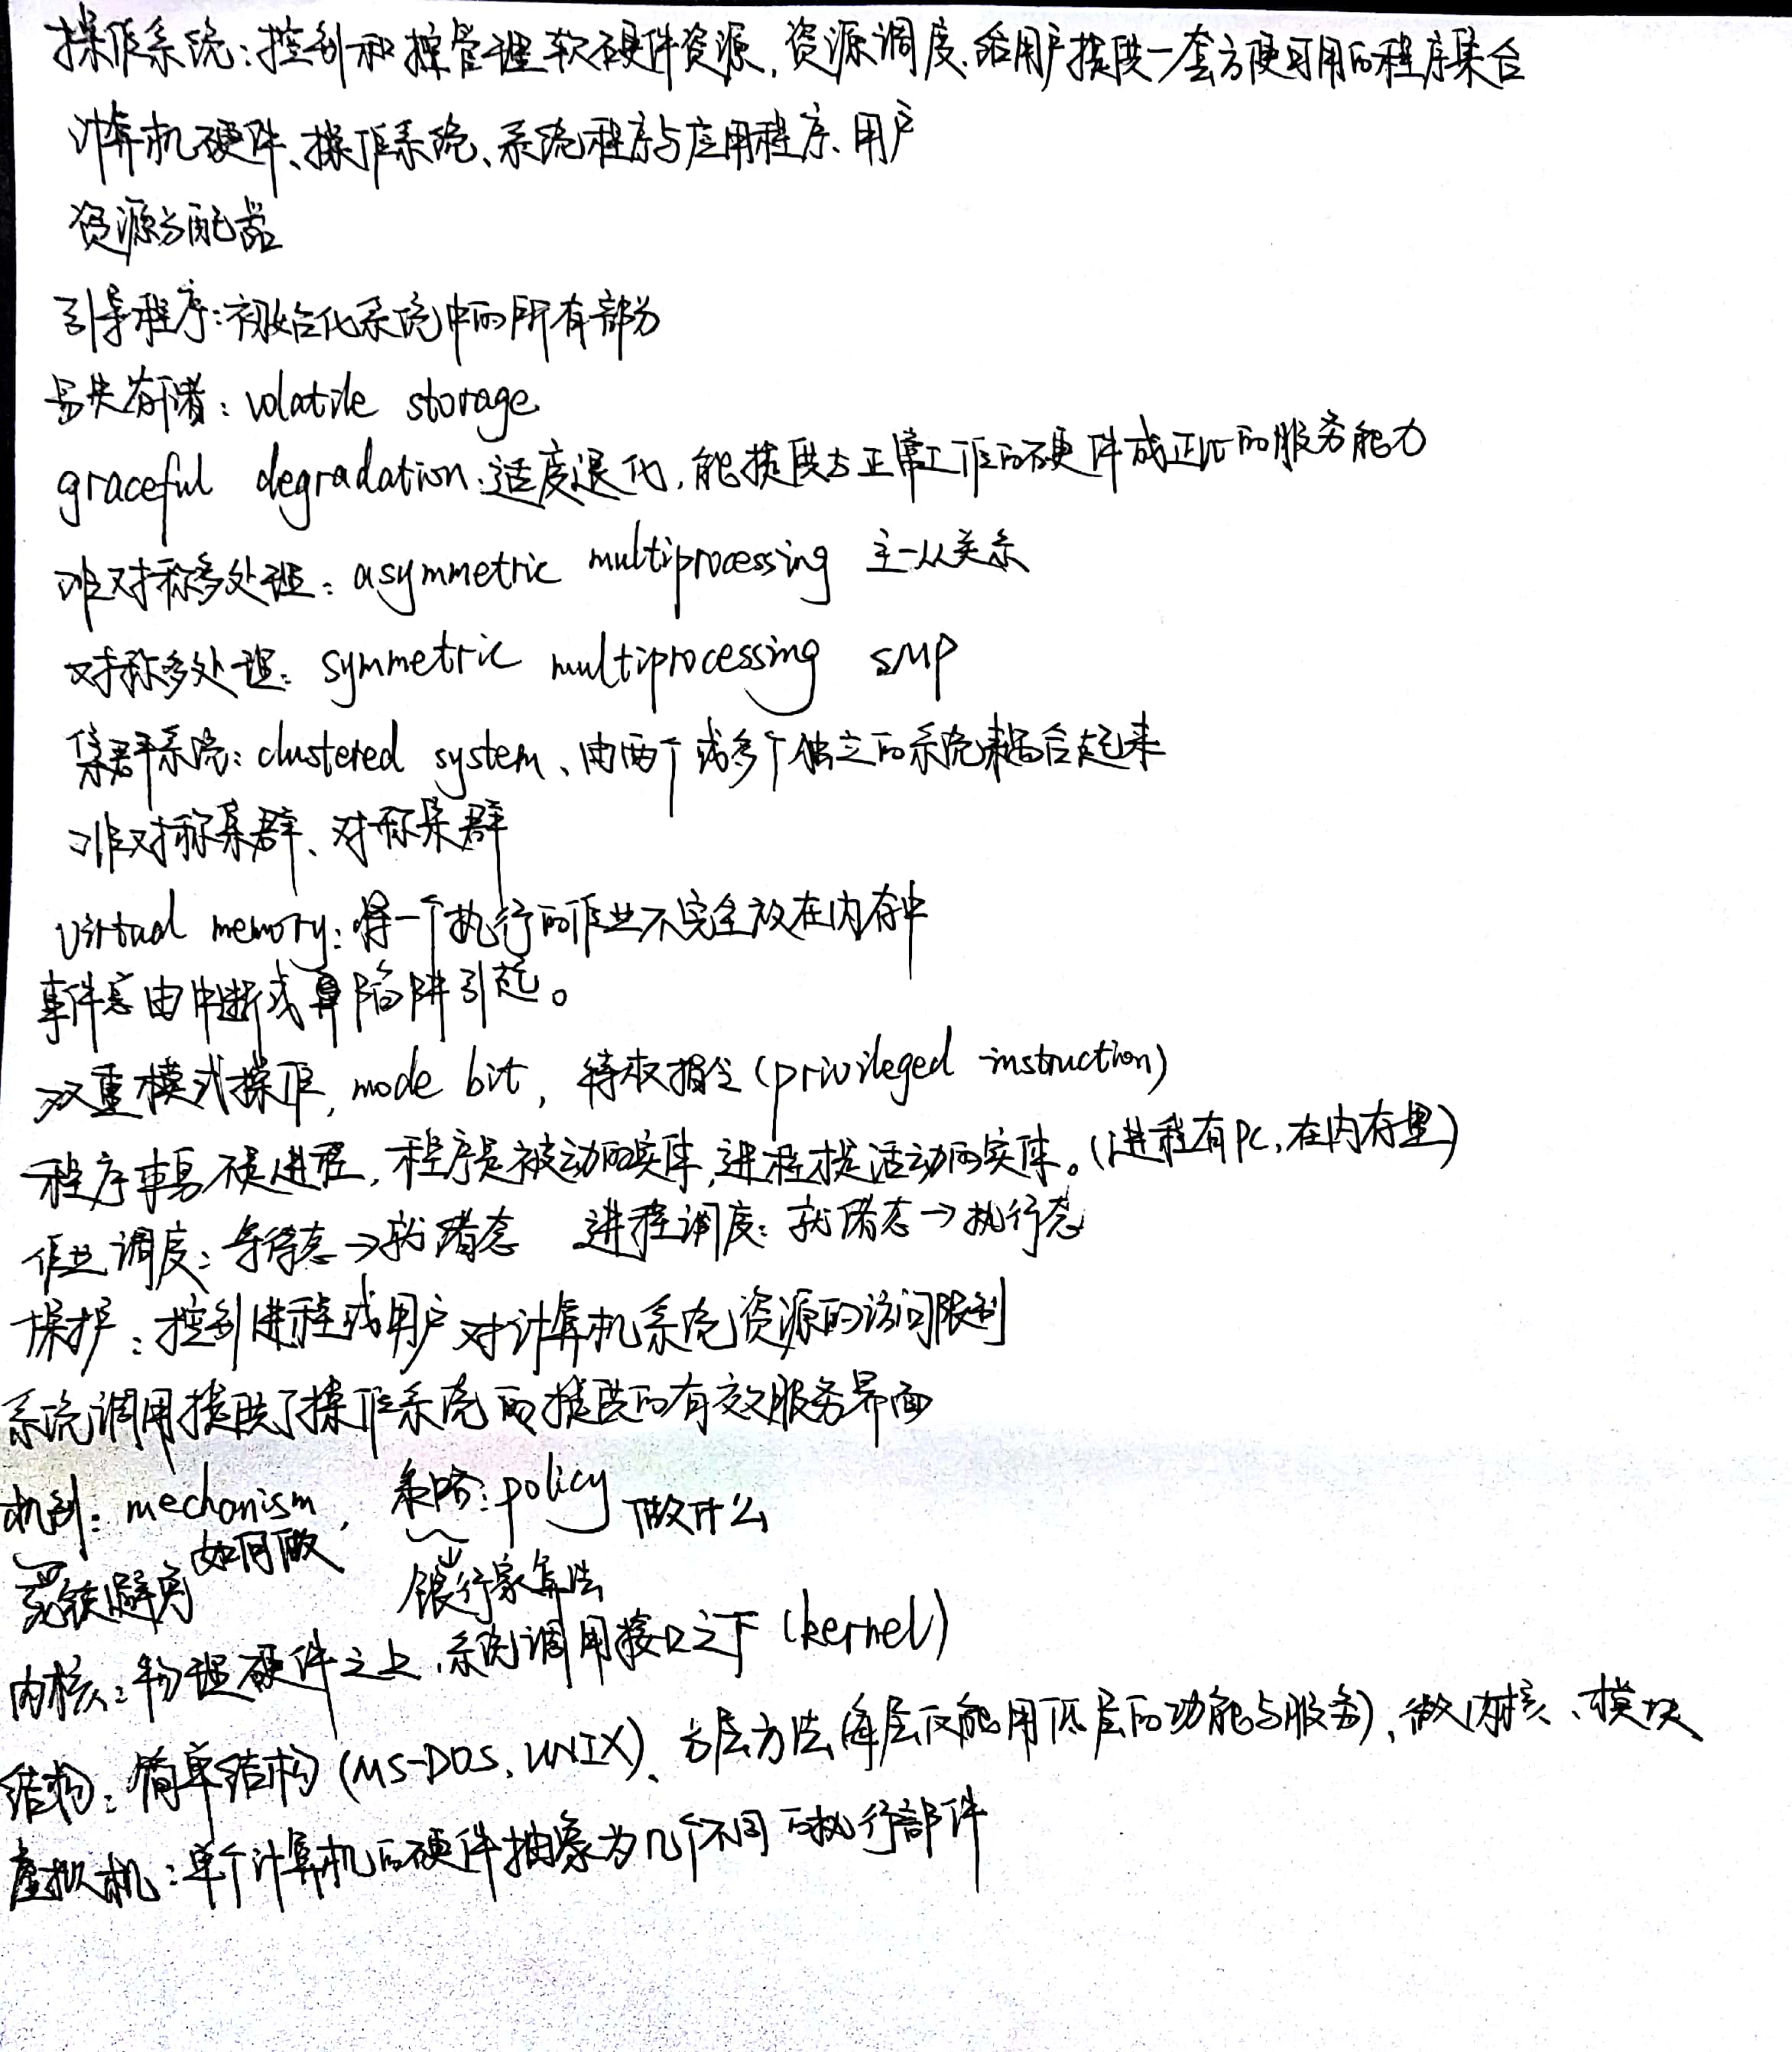 操作系统:控制和管理软硬件资源,资源调度,给用户提供一套方便可用的程序集合
计算机硬件、操作系统、系统程序与应用程序、用户
资源分配器
引导程序:初始化系统中的所有部分
易失存储:volatile storage
graceful degradation:适度退化,能提供与正常工作的硬件成正比的服务能力
非对称多处理:asymmetric multiprocessing 主-从关系
对称多处理:symmetric multiprocessing SMP
集群系统:clustered system、由两个或多个独立的系统耦合起来
非对称集群、对称集群
virtual memory:将一个执行的作业不完全放在内存中
事件总由中断或陷阱引起。
双重模式操作, mode bit, 特权指令(privileged instruction)
程序本身不是进程,程序是被动的实体,进程才是活动的实体。(进程有PC,在内存里)
作业调度:等待态→就绪态 进程调度:就绪态→执行态
保护:控制进程或用户对计算机系统资源的访问限制
系统调用提供了操作系统提供的有效服务界面
机制:mechanism, 策略:policy 做什么
如何做
死锁避免 银行家算法
内核:物理硬件之上,系统调用接口之下(kernel)
结构:简单结构(MS-DOS,UNIX)、分层方法(每层仅能用低层的功能与服务)、微内核、模块
虚拟机:单个计算机的硬件抽象为几个不同的执行部件